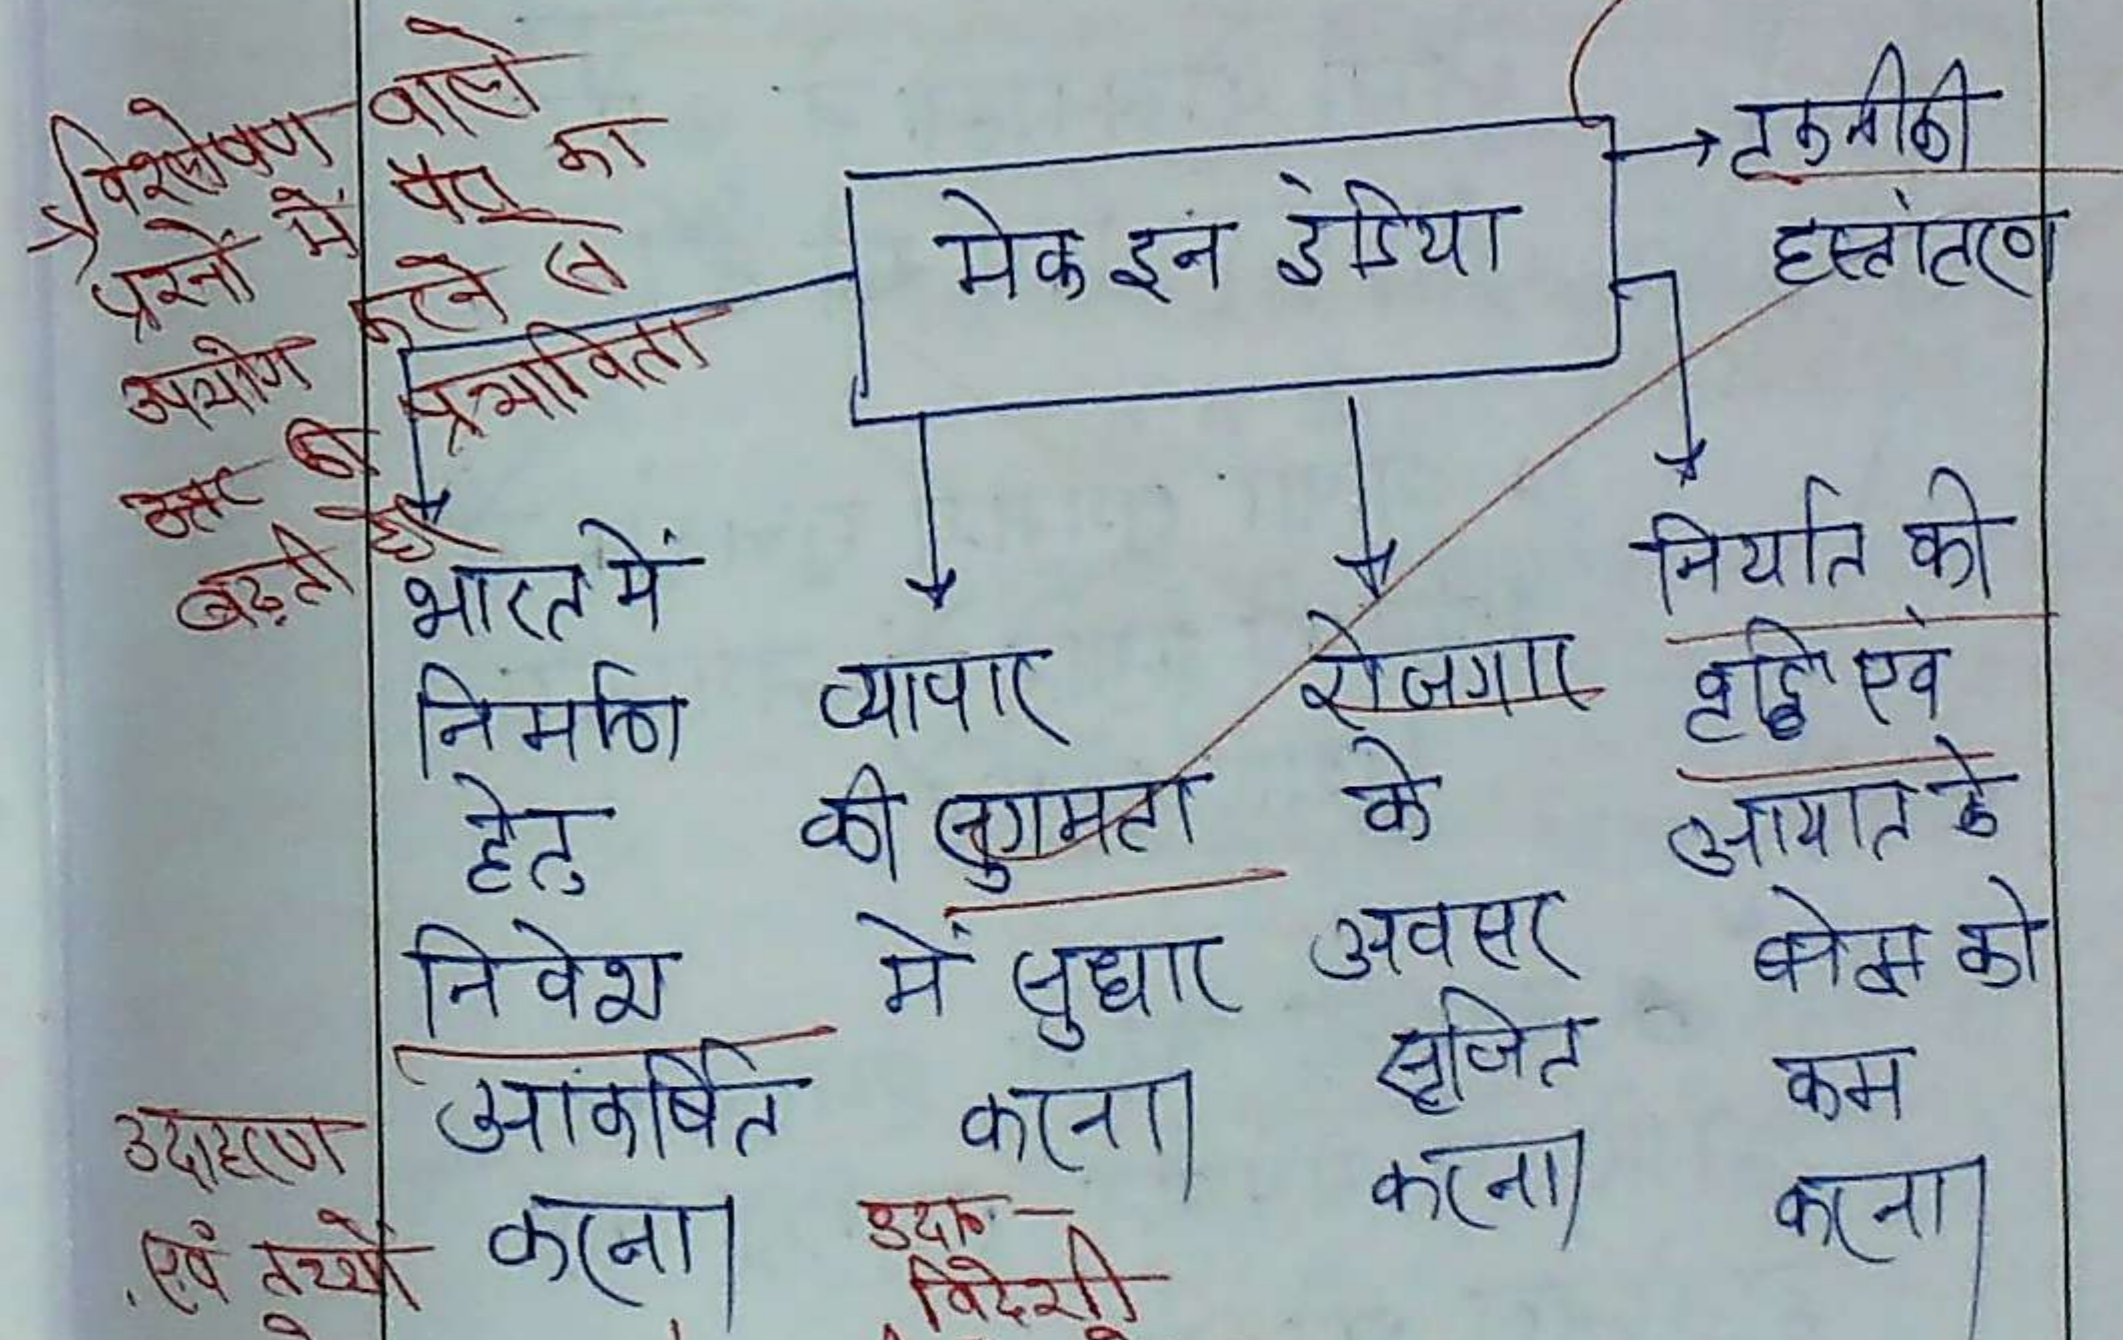 विश्लेषण वाले
प्रश्नों में मैप का
उपयोग करने से
उत्तर की प्रभाविता
बढ़ती है
मेक इन इंडिया
टकनीकी
हस्तांतरण
भारत में
निर्माण
हेतु
निवेश
आकर्षित
करना।
व्यापार
की सुगमता
में सुधार
करना।
रोजगार
के
अवसर
सृजित
करना।
निर्यात की
वृद्धि एवं
आयात के
बोझ को
कम
करना।
उदाहरण
एवं तथ्यों
उदा०-
विदेशी